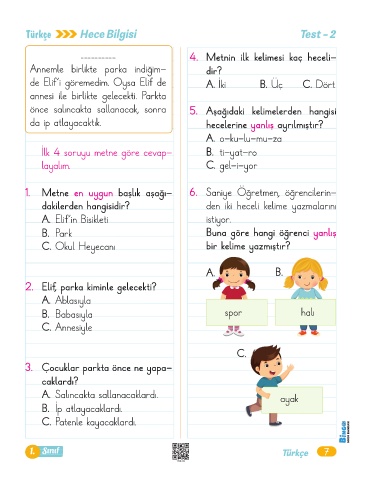 Türkçe >>> Hece Bilgisi
Test - 2
----------
Annemle birlikte parka indiğim-
de Elif'i göremedim. Oysa Elif de
annesi ile birlikte gelecekti. Parkta
önce salıncakta sallanacak, sonra
da ip atlayacaktık.
İlk 4 soruyu metne göre cevap-
layalım.
1. Metne en uygun başlık aşağı-
dakilerden hangisidir?
A. Elif'in Bisikleti
B. Park
C. Okul Heyecanı
2. Elif, parka kiminle gelecekti?
A. Ablasıyla
B. Babasıyla
C. Annesiyle
3. Çocuklar parkta önce ne yapa-
caklardı?
A. Salıncakta sallanacaklardı.
B. İp atlayacaklardı.
C. Patenle kayacaklardı.
4. Metnin ilk kelimesi kaç heceli-
dir?
A. İki B. Üç C. Dört
5. Aşağıdaki kelimelerden hangisi
hecelerine yanlış ayrılmıştır?
A. o-ku-lu-mu-za
B. ti-yat-ro
C. gel-i-yor
6. Saniye Öğretmen, öğrencilerin-
den iki heceli kelime yazmalarını
istiyor.
Buna göre hangi öğrenci yanlış
bir kelime yazmıştır?
A. B.
spor halı
C.
ayak
1. Sınıf
Türkçe 7